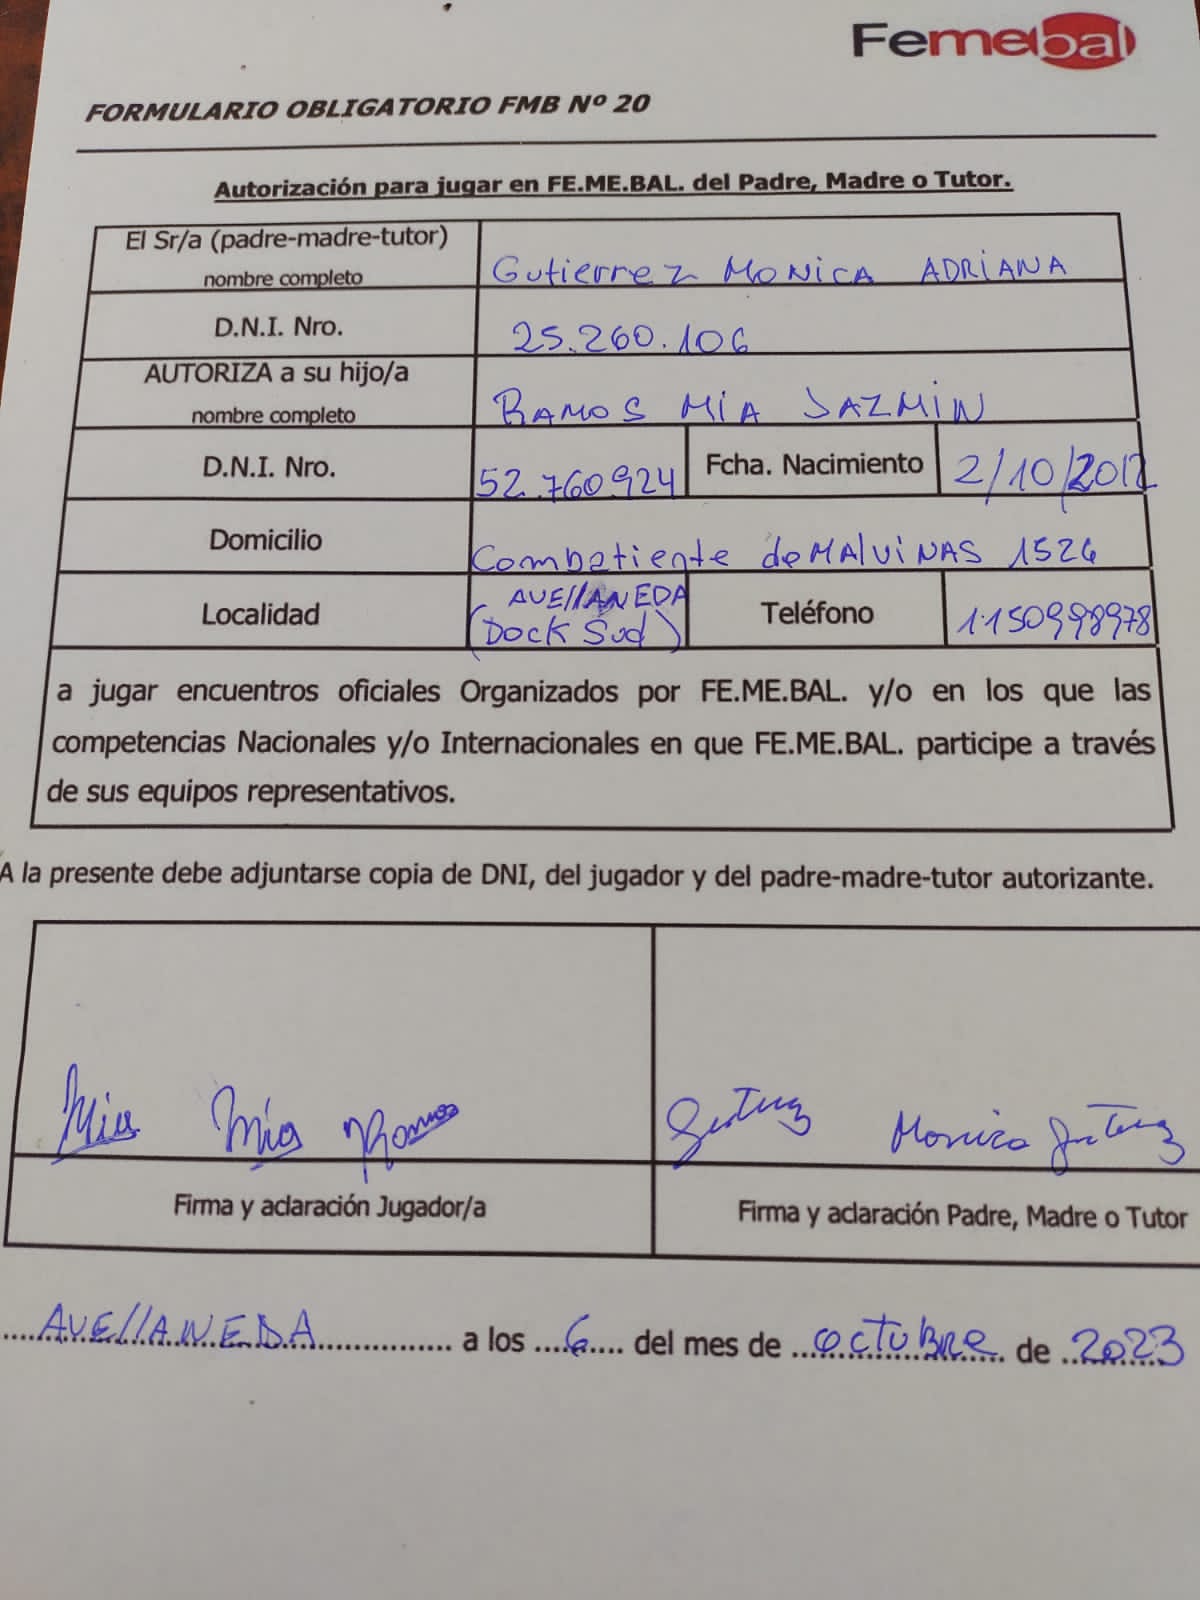 Femebal
FORMULARIO OBLIGATORIO FMB Nº 20
Autorización para jugar en FE.ME.BAL. del Padre, Madre o Tutor.
El Sr/a (padre-madre-tutor) nombre completo
Gutierrez MONICA ADRIANA
D.N.I. Nro.
25.260.106
AUTORIZA a su hijo/a nombre completo
RAMOS MIA JAZMIN
D.N.I. Nro.
52.760924
Fcha. Nacimiento
2/10/2012
Domicilio
Combatiente de MAlviNAS 1526
Localidad
AVEllANEDA
(Dock Sud)
Teléfono
1150998978
a jugar encuentros oficiales Organizados por FE.ME.BAL. y/o en los que las
competencias Nacionales y/o Internacionales en que FE.ME.BAL. participe a través
de sus equipos representativos.
A la presente debe adjuntarse copia de DNI, del jugador y del padre-madre-tutor autorizante.
Mia Mia Ramos
Monica
Firma y aclaración Jugador/a
Firma y aclaración Padre, Madre o Tutor
AVEllANEDA a los 6 del mes de octubre de 2023